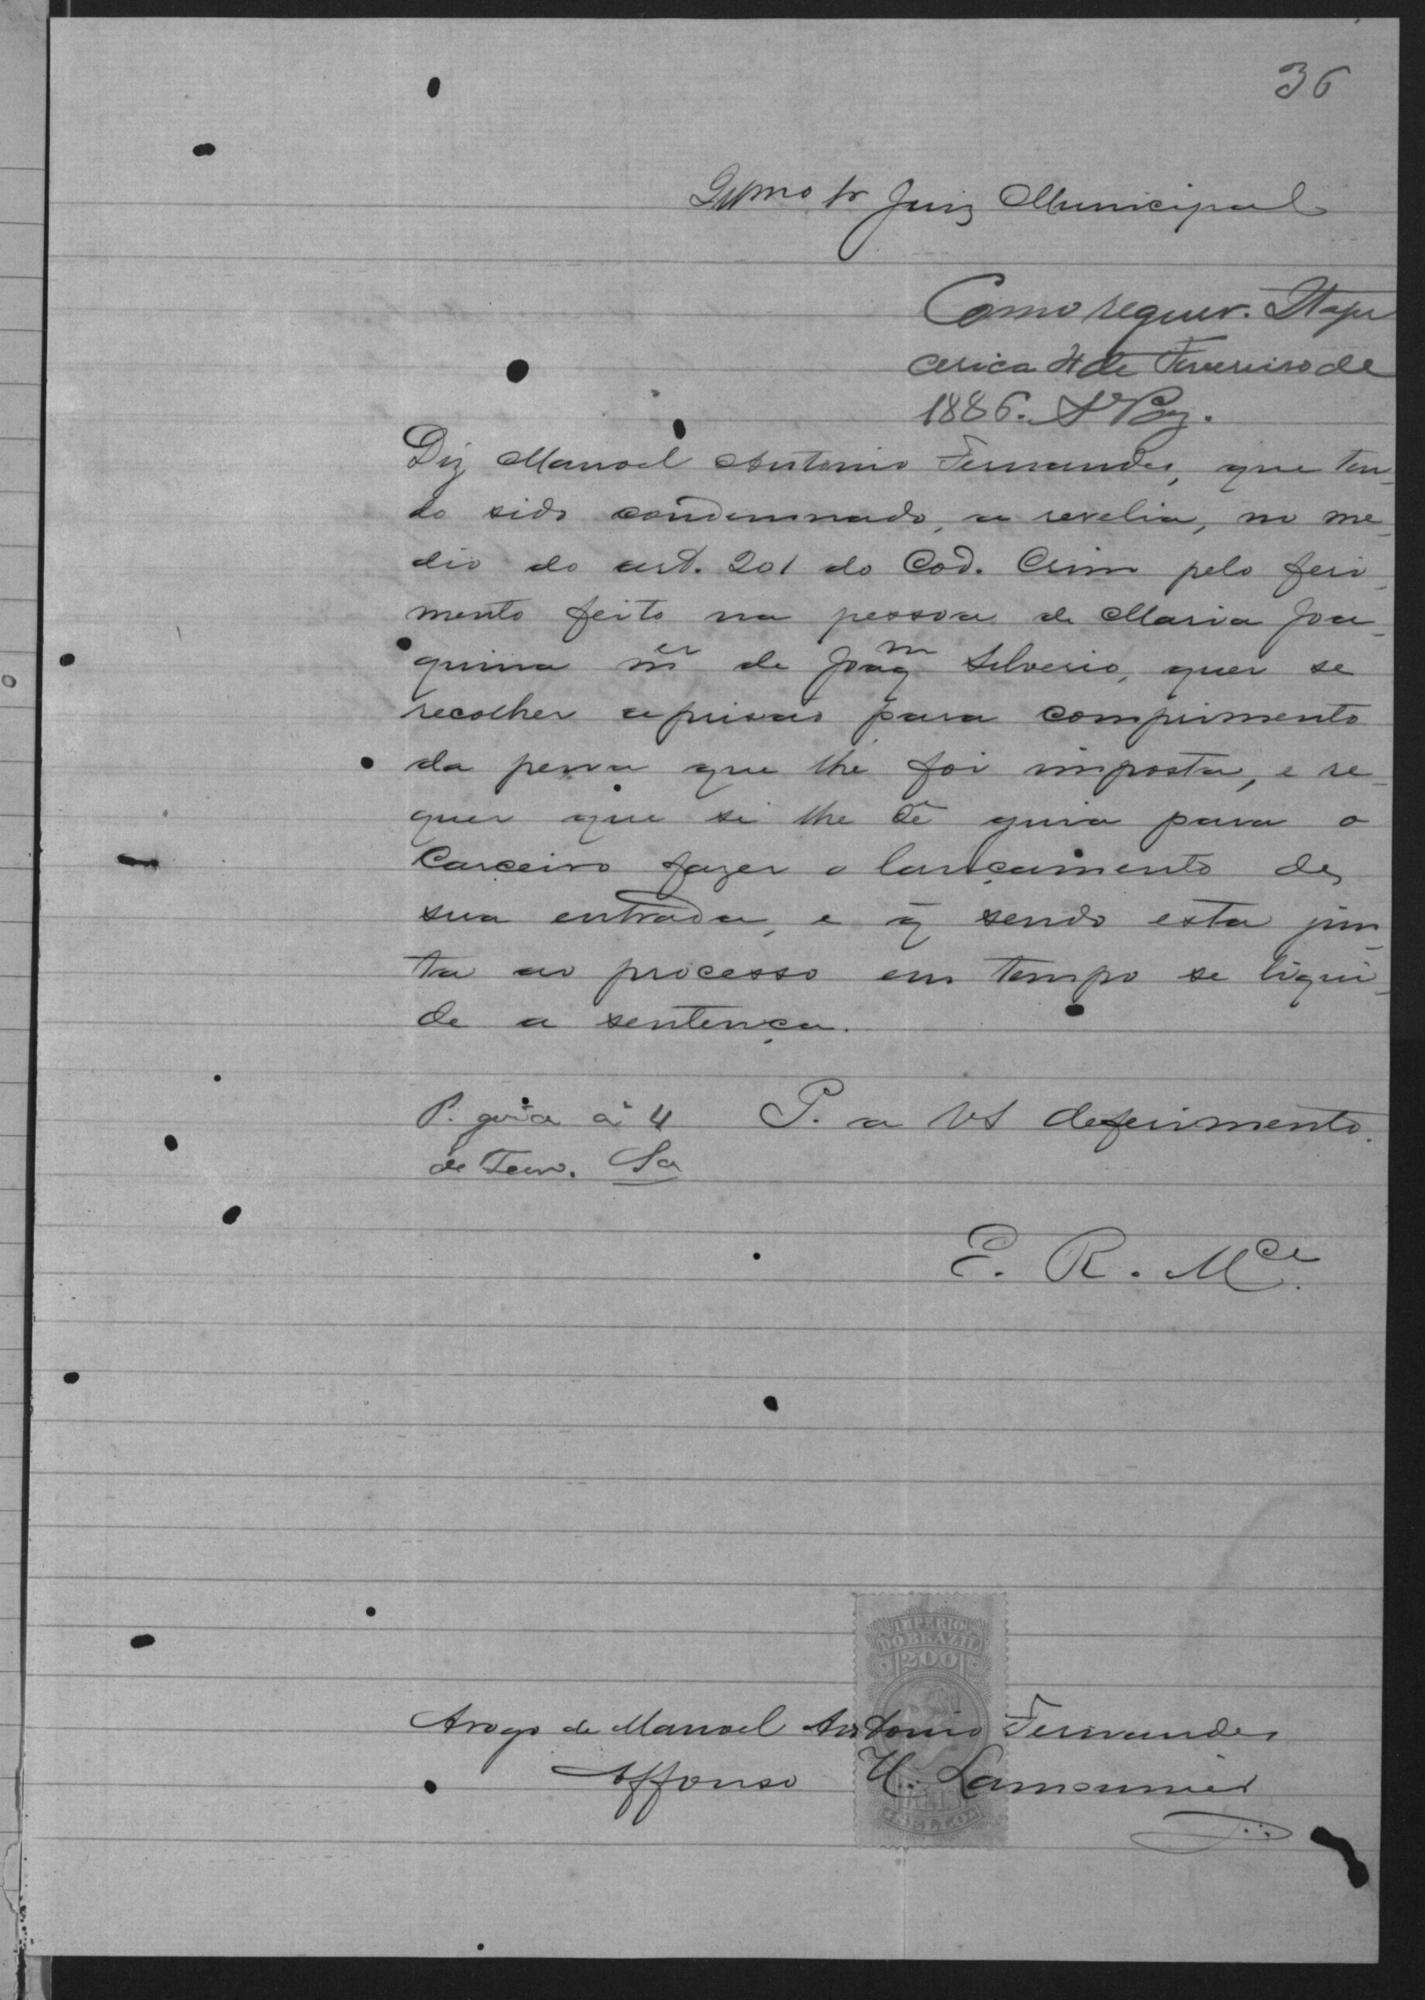 36
Illmo Sr Juiz Municipal
Como requer. Itape
cerica 4 de Fevereiro de
1886. Vaz.
Diz Manoel Antonio Fernandes, que ten-
do sido condemnado, a revelia, no me-
dio do art. 201 do Cod. Crim pelo feri-
mento feito na pessoa de Maria Joa-
quina mer de Joaqm Silverio, quer se
recolher a prisão para comprimento
da pena que lhe foi imposta, e re-
quer que si lhe dê guia para o
Carceiro fazer o lançamento de
sua entrada, e q̃ sendo esta jun-
ta ao processo em tempo se liqui-
de a sentença.
P. guia á 4 P. a VS deferimento.
de Fevro. Sa
E. R. Mce.
IMPERIO
DO BRAZIL
200
Arogo de Manoel Antonio Fernandes
Affonso H. Lamounier
REIS
SELLO